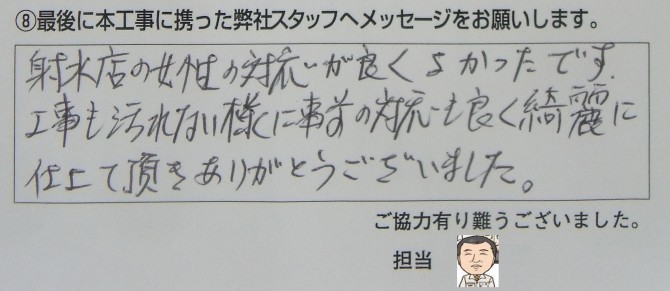 ⑧最後に本工事に携った弊社スタッフへメッセージをお願いします。
射水店の女性の対応が良くよかったです.
工事も汚れない様に事前の対応も良く綺麗に
仕上て頂きありがとうございました。
ご協力有り難うございました。
担当